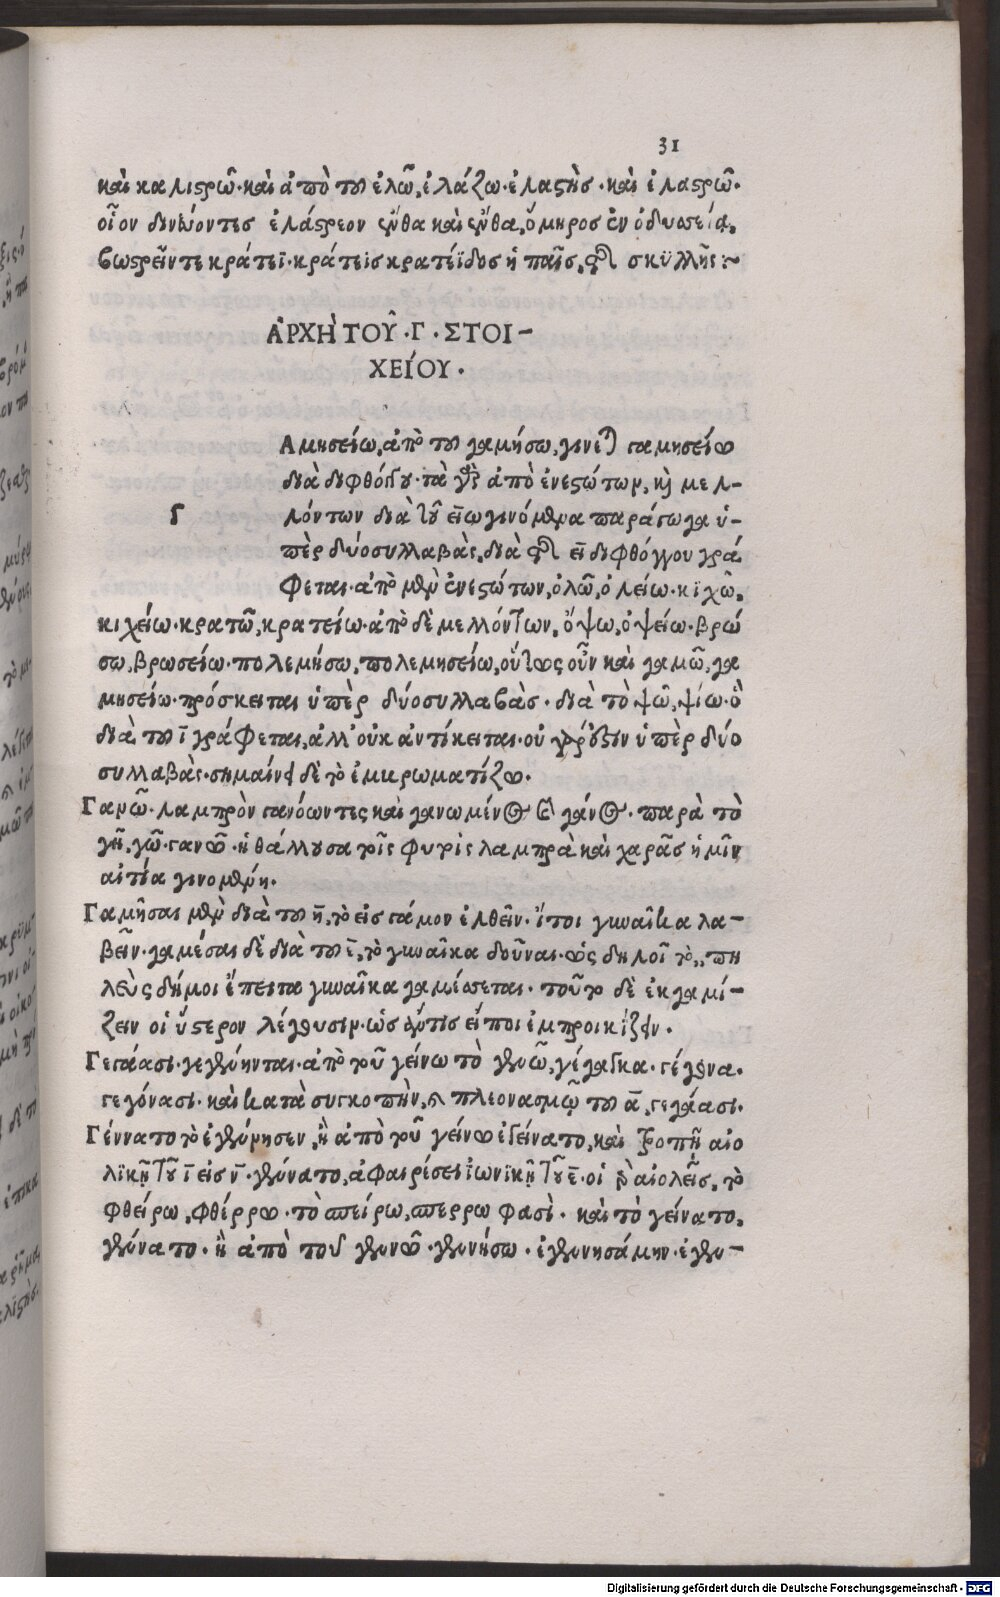 31
καὶ καλιστρῶ· καὶ ἀπὸ τοῦ ἐλῶ, ἐλάζω· ἐλαστὴς· καὶ ἐλαστρῶ·
οἷον δινεύοντες ἐλάστρεον ἔνθα καὶ ἔνθα, ὅμηρος ἐν ὀδυσσεία,
βωστρεῖν τε κράτεϊ· κράτεις κρατέϊδος ἡ παῖς, καὶ σκύλλης :~
ἈΡΧῊ ΤΟΥ͂ ·Γ· ΣΤΟΙ-
ΧΕΊΟΥ ·
Αμησείω, ἀπὸ τοῦ γαμήσω, γίνεται γαμησείω
διὰ διφθόγγου· τὰ γὰρ ἀπὸ ἐνεστώτων, καὶ μελ-
Γ λόντων διὰ τοῦ είω γινόμενα παράγωγα ὑ-
πὲρ δύο συλλαβὰς, διὰ τῆς ει διφθόγγου γρά
φεται· ἀπὸ μὲν ἐνεστώτων, ὀλῶ, ὀλείω· κιχῶ,
κιχείω· κρατῶ, κρατείω· ἀπὸ δὲ μελλόντων, ὄψω, ὀψείω· βρώ
σω, βρωσείω· πολεμήσω, πολεμησείω, οὕτως οὖν καὶ γαμῶ, γα
μησείω· πρόσκειται ὑπὲρ δύο συλλαβὰς· διὰ τὸ ψῶ, ψίω· ὃ
διὰ τοῦ ῑ γράφεται, ἀλλ' οὐκ ἀντίκειται· οὐ γάρ ἐστιν ὑπὲρ δύο
συλλαβὰς· σημαίνει δὲ τὸ
Γανῶ· λαμπρὸν γανόωντες καὶ γανωμένος καὶ γάνος· παρὰ τὸ
γῆ, γῶ· γανῶ· ἡ θάλλουσα τοῖς φυτοῖς λαμπρὰ καὶ χαρᾶς ἡμῖν
αἰτία γινομένη·
Γαμῆσαι μὲν διὰ τοῦ η̄, τὸ εἰς γάμον ἐλθεῖν· ἤτοι γυναῖκα λα-
βεῖν· γαμέσαι δὲ διὰ τοῦ ε̄, τὸ γυναῖκα δοῦναι· ὡς δηλοῖ τὸ,, πη
λεὺς δήμοι ἔπειτα γυναῖκα γαμέσσεται· τοῦτο δὲ ἐκγαμί-
ζειν οἱ ὕστερον λέγουσιν· ὡς ἄν τις εἴποι ἐμπροικίζειν·
Γεγάασι· γεγένηνται· ἀπὸ τοῦ γείνω τὸ γενῶ, γέγακα· γέγονα,
γεγόνασι· καὶ κατὰ συγκοπὴν, καὶ πλεονασμῷ τοῦ ᾱ, γεγάασι·
Γέννατο τὸ ἐγέννησεν, ἢ ἀπὸ τοῦ γείνω ἐγείνατο, καὶ τροπῇ αἰο
λϊκῇ τοῦ ῑ εἰς ν̄· γέννατο, ἀφαιρέσει ἰωνϊκῇ τοῦ ε̄· οἱ γὰρ αἰολεῖς, τὸ
φθείρω, φθέρρω· τὸ σπείρω, σπέρρω φασὶ· καὶ τὸ γείνατο,
γέννατο· ἢ ἀπὸ τοῦ γεννῶ· γεννήσω· ἐγεννησάμην· ἐγεν-
Digitalisierung gefördert durch die Deutsche Forschungsgemeinschaft · DFG